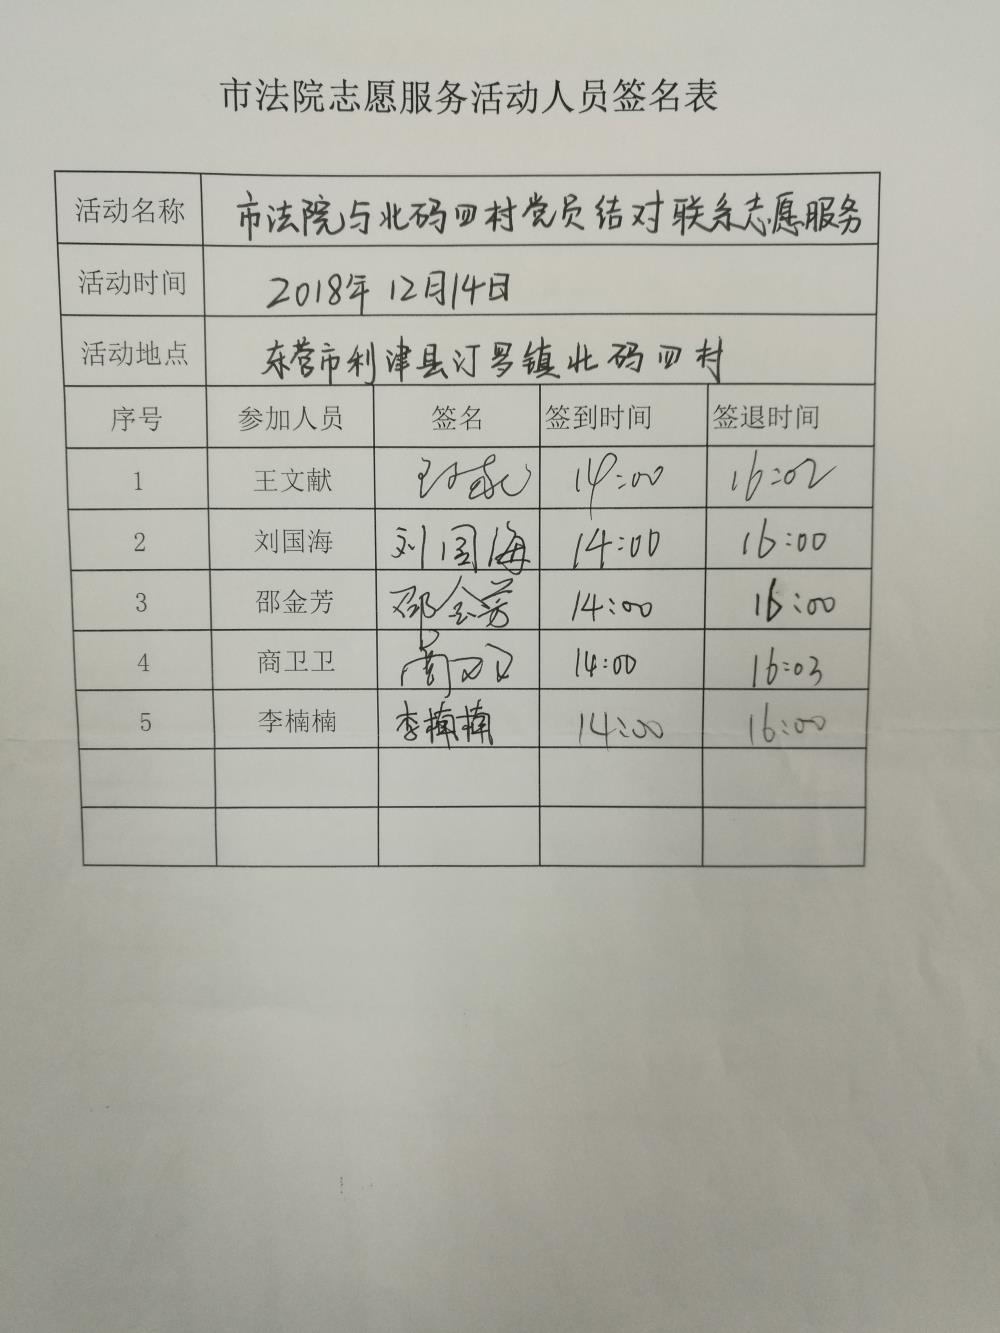 市法院志愿服务活动人员签名表
活动名称 市法院与北码四村党员结对联系志愿服务
活动时间 2018年12月14日
活动地点 东营市利津县汀罗镇北码四村
序号 参加人员 签名 签到时间 签退时间
1 王文献 王文献 14:00 16:02
2 刘国海 刘国海 14:00 16:00
3 邵金芳 邵金芳 14:00 16:00
4 商卫卫 商卫卫 14:00 16:03
5 李楠楠 李楠楠 14:00 16:00